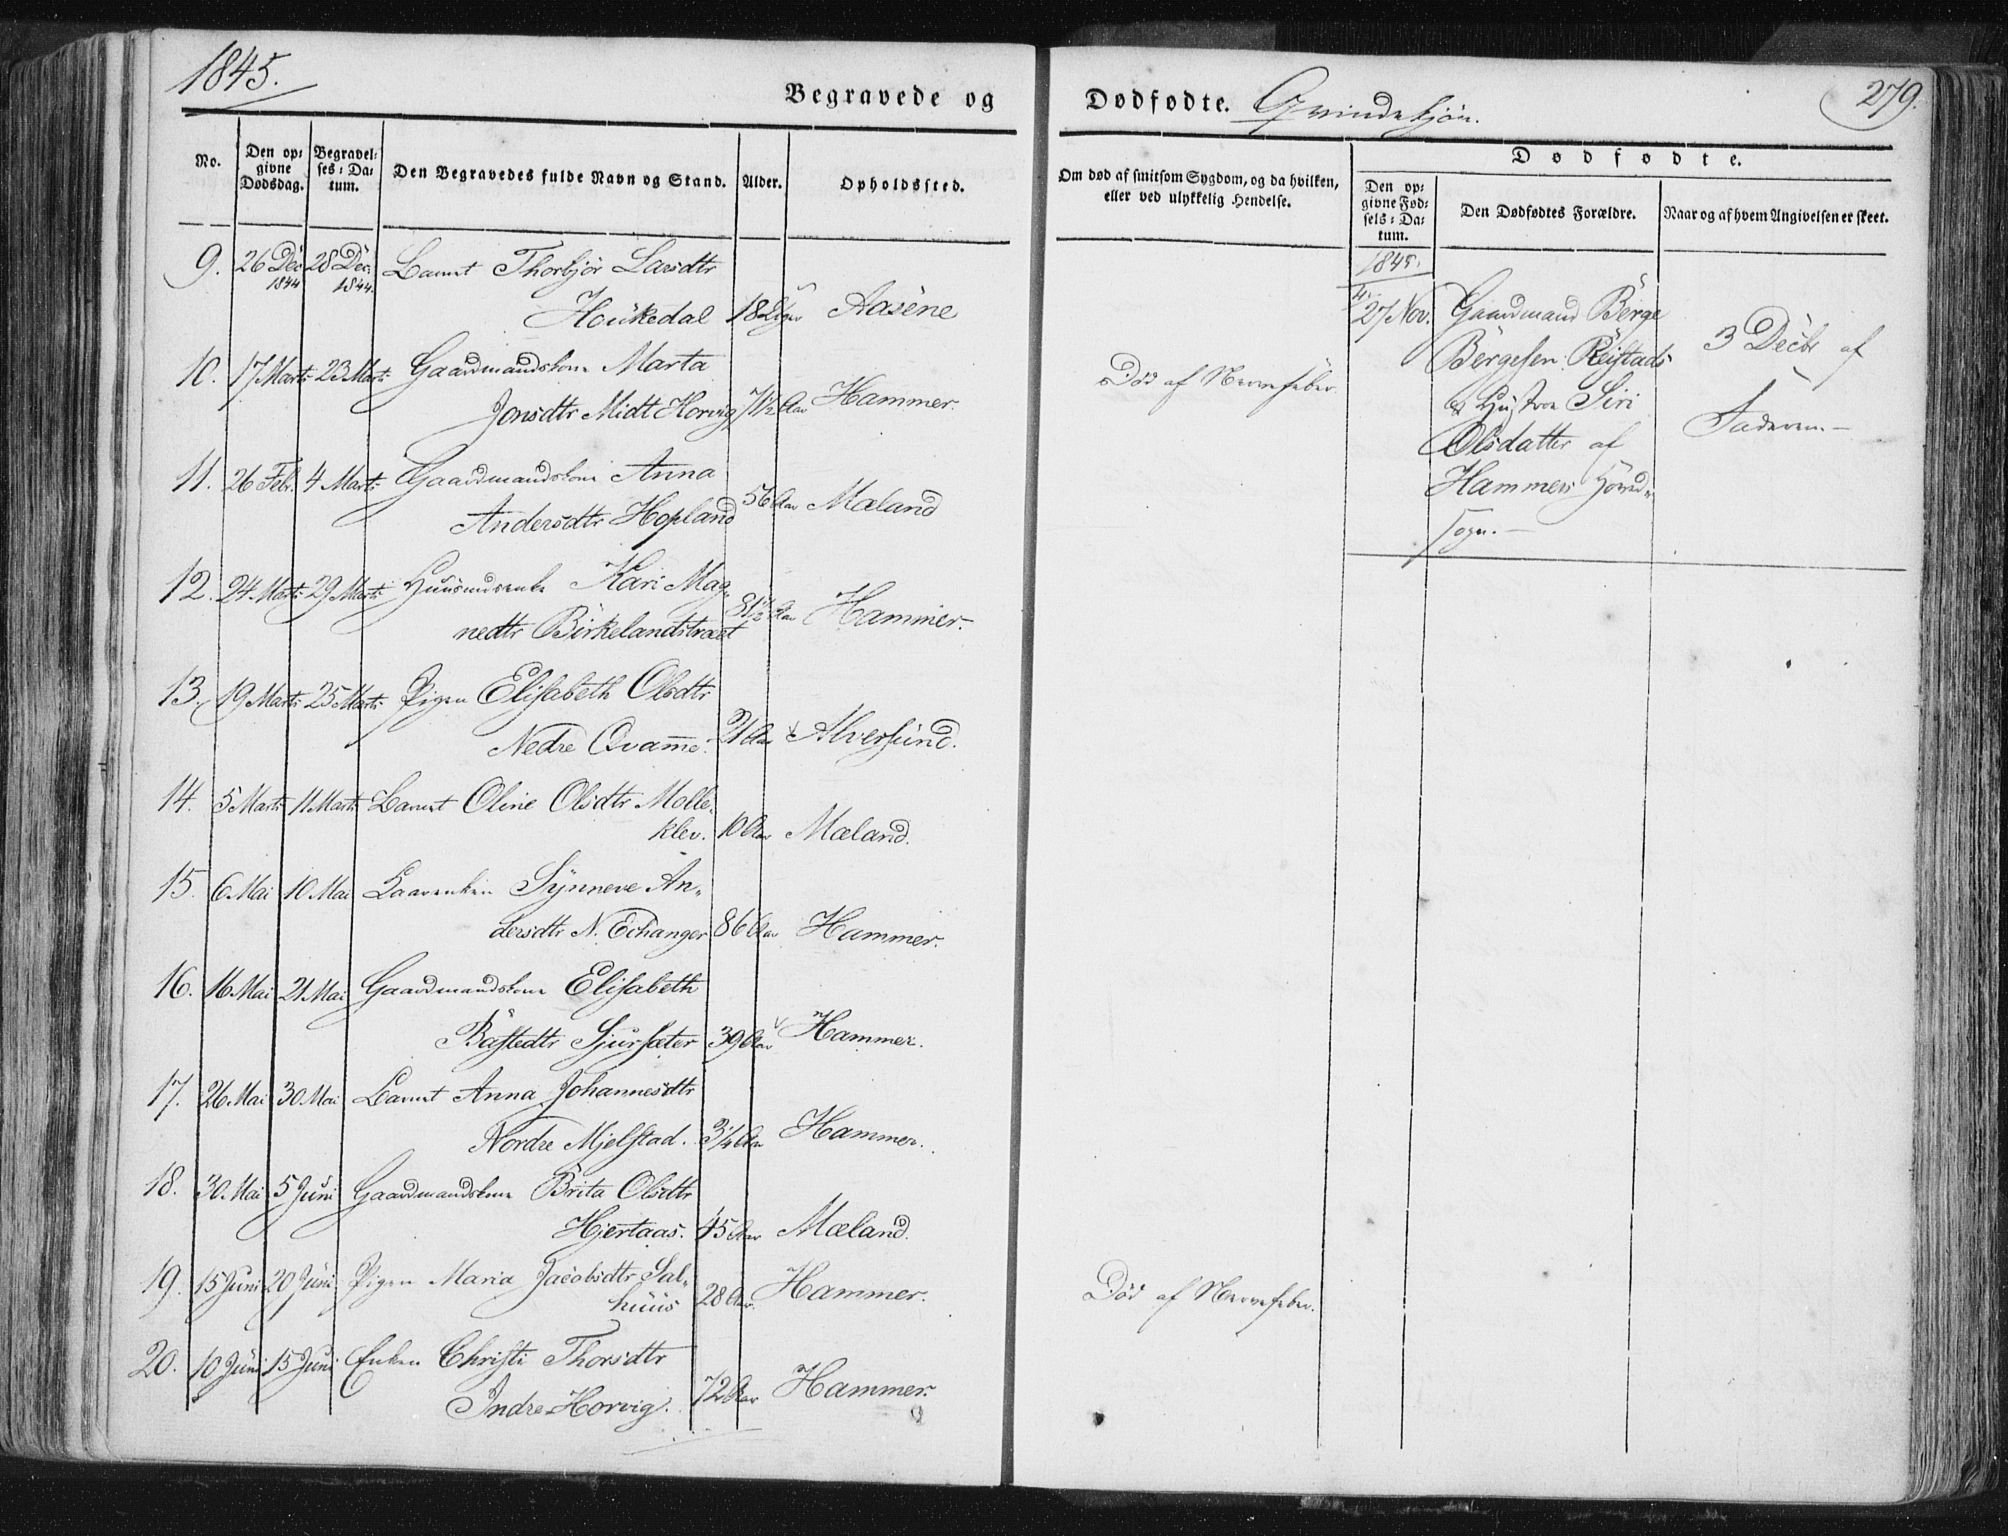 1845.
Begravede og
Dødfødte. Qvindekjön.
279.
No.
Den op-
givne
Dødsdag.
Begravel-
ses-Da-
tum.
Den Begravedes fulde Navn og Stand.
Alder.
Opholdssted.
Om død af smitsom Sygdom, og da hvilken,
eller ved ulykkelig Hendelse.
Dødfødte.
Den op-
givne Fød-
sels-Da-
tum.
Den Dødfødtes Forældre.
Naar og af hvem Angivelsen er skeet.
9. 26 Dec 1844 28 Dec. 1844. Barnet Thorbjör Larsdtr
Houkedal 18 Dger Aasene
10. 17 Marts 23 Marts Gaardmandskone Marta
Jonsdtr Midt Horvig 71½ Aar Hammer. Död af Nervefeber.
11. 26 Febr. 4 Marts Gaardmandskone Anna
Andersdtr Hopland 56 Aar Mæland
12. 24 Marts 29 Marts Huusmdsenke Kari Mag-
nedtr Birkelandstræet 81½ Aar Hammer.
13. 19 Marts 25 Marts Pigen Elisabeth Olsdtr
Nedre Qvamme. 21 Aar Alversund.
14. 5 Marts 11 Marts Barnet Oline Olsdtr Molle-
klev. 10 Aar Mæland.
15. 6 Mai 10 Mai Kaarenken Synneve An-
dersdtr N. Echanger 86 Aar Hammer.
16. 16 Mai 21 Mai Gaardmandskone Elisabeth
Bastedtr Sjursæter 39 Aar Hammer.
17. 26 Mai 30 Mai Barnet Anna Johannesdtr
Nordre Mjelstad. 3/4 Aar Hammer.
18. 30 Mai 5 Juni Gaardmandskone Brita Olsdtr
Hjertaas. 45 Aar Mæland.
19. 15 Juni 20 Juni Pigen Maria Jacobsdtr Sal-
huus 28 Aar. Hammer. Död af Nervefeber.
20. 10 Juni 15 Juni Enken Christi Thorsdtr
Indre Horvig. 72 Aar Hammer.
1845.
4.
27 Nov. Gaardmand Börge
Börgesen Reistads
& Hustroe Siri
Olsdatter af
Hammers Hoved-
sogn.
3 Decbr af
Faderen.